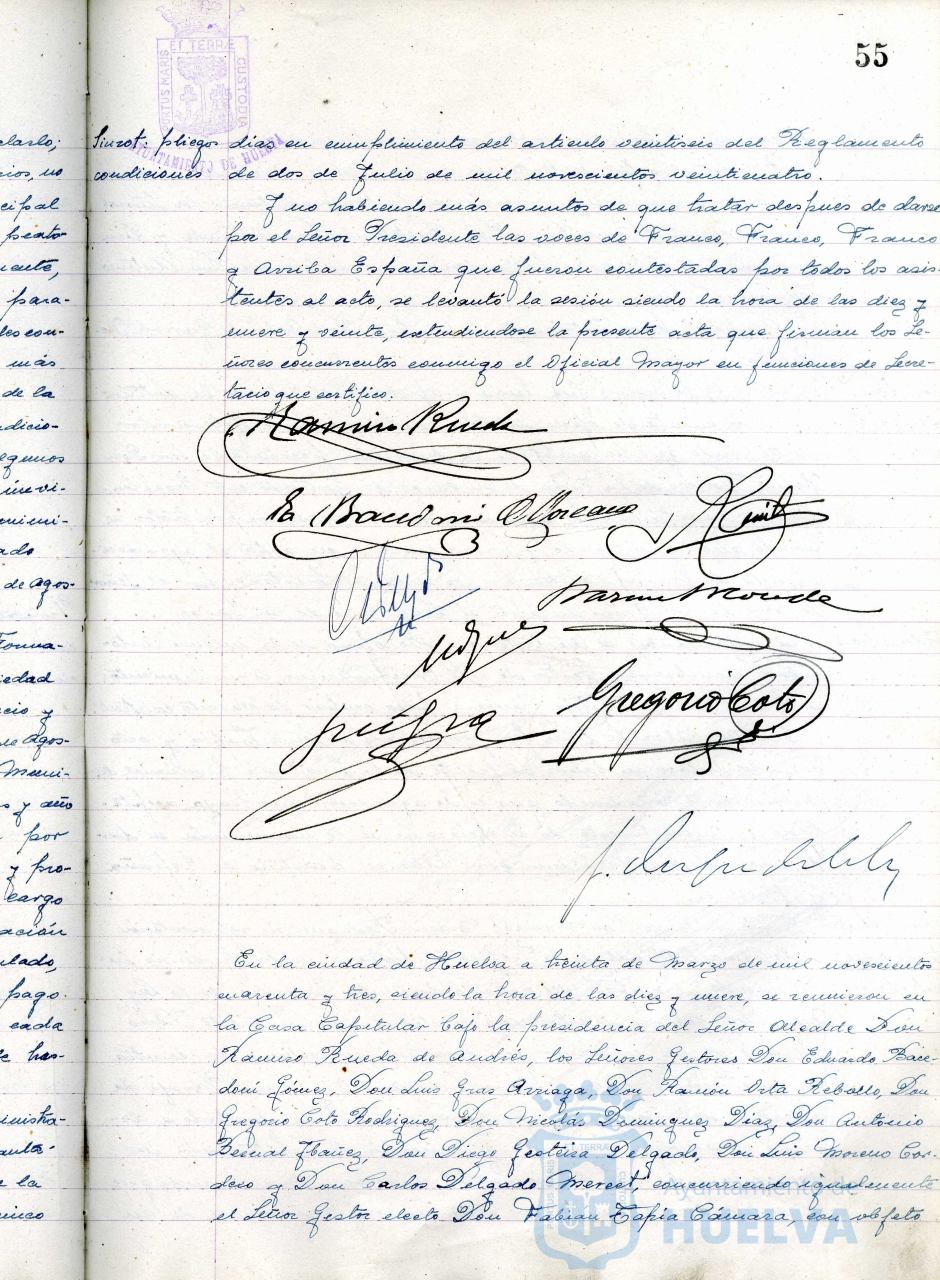 55
PORTUS MARIS ET TERRAE CUSTODIA
AYUNTAMIENTO DE HUELVA
clarlo;
rios, no
cipal
mente,
para-
les con-
más
de la
dicio-
inevi-
de agos-
Forma-
iedad
cio y
de Agos-
Muni-
s y año
por
y pro-
cargo
ación
ulado,
pago
cada
de has-
inistra-
e la
pliegos
condiciones
días en cumplimiento del articulo veintiseis del Reglamento
de dos de Julio de mil novescientos veinticuatro.
Y no habiendo más asuntos de que tratar despues de darse
por el Señor Presidente las voces de Franco, Franco, Franco
y Arriba España que fueron contestadas por todos los asis-
tentes al acto, se levantó la sesión siendo la hora de las diez y
nueve y veinte, extendiendose la presente acta que firman los Se-
ñores concurrentes conmigo el Oficial Mayor en funciones de Secre-
tario que certifico.
Ramiro Rueda
Gregorio Coto
En la ciudad de Huelva a treinta de Marzo de mil novescientos
cuarenta y tres, siendo la hora de las diez y nueve, se reunieron en
la Casa Capitular bajo la presidencia del Señor Alcalde Don
Ramiro Rueda de Andrés, los Señores Gestores Don Eduardo Bace-
doni Gómez, Don Luis Gras Arriaga, Don Ramón Orta Rebollo, Don
Gregorio Coto Rodriguez, Don Nicolás Dominguez Diaz, Don Antonio
Bernal Ybañez, Don Diego Gesteira Delgado, Don Luis Moreno Cor-
dero y Don Carlos Delgado Mercet, concurriendo igualmente
el Señor Gestor electo Don Fabian Tapia Cámara, con objeto
Ayuntamiento de
HUELVA